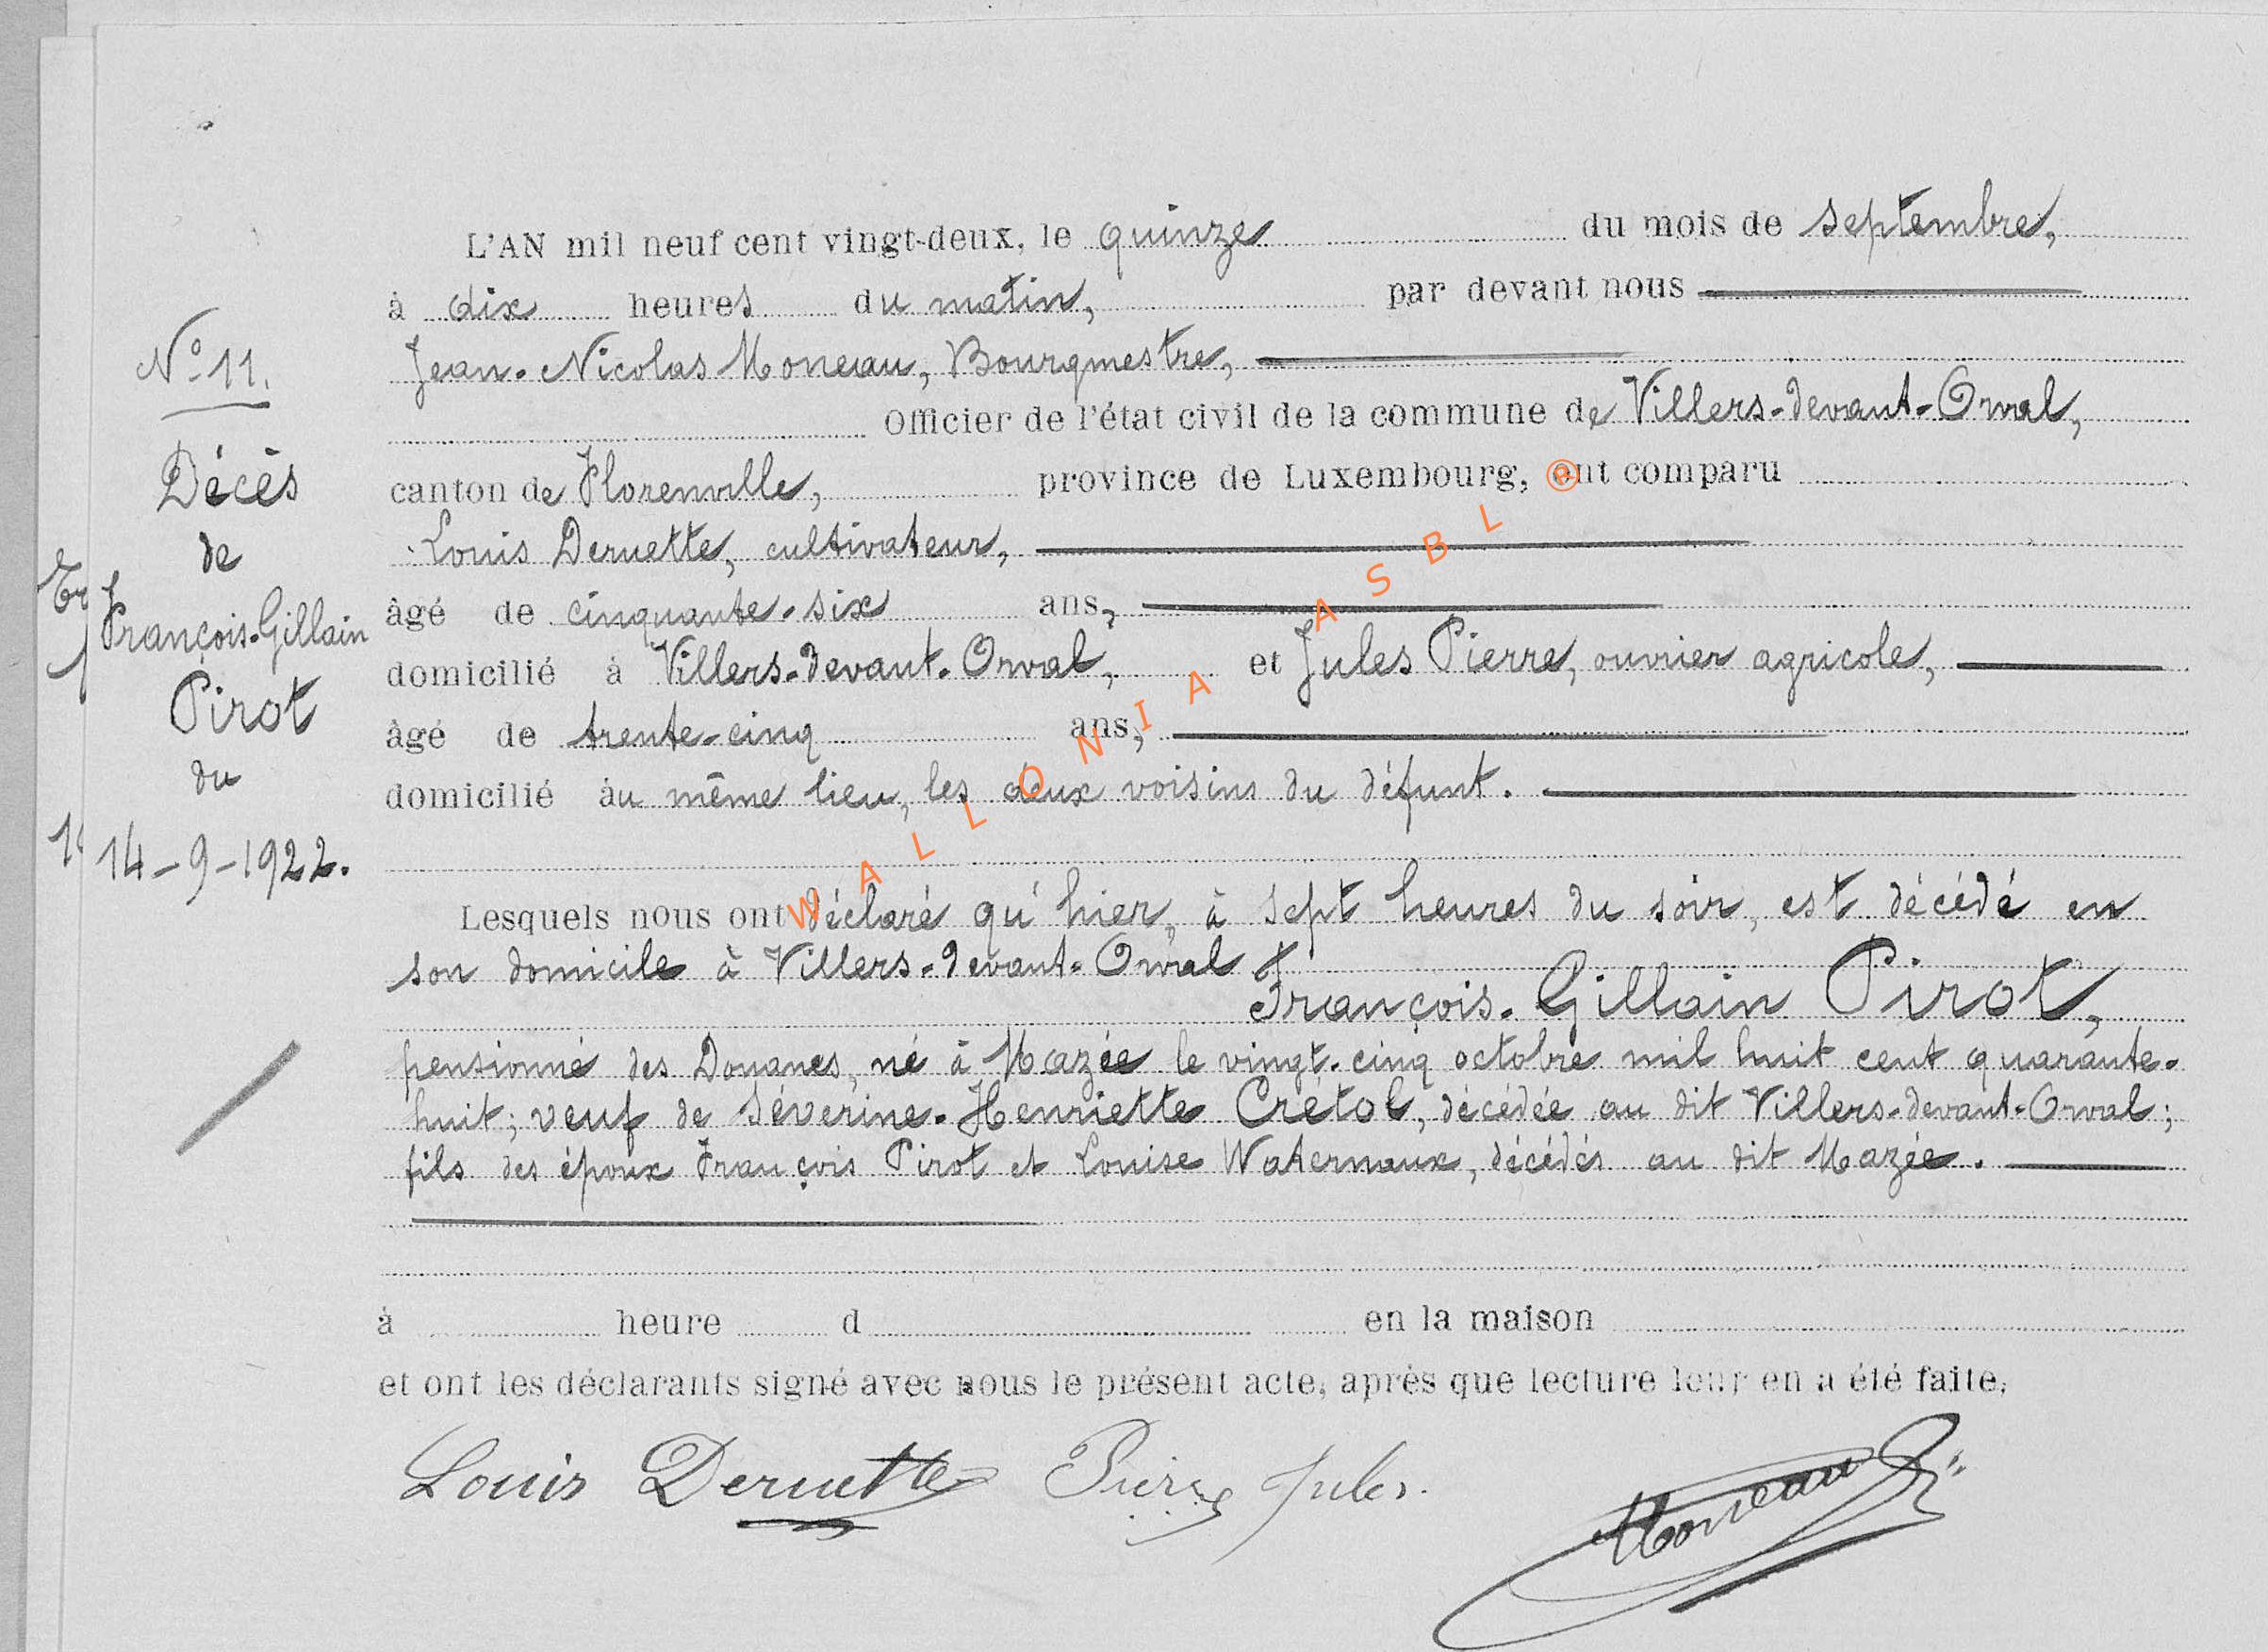 L'AN mil neuf cent vingt-deux, le quinze du mois de septembre,
à dix heures du matin, par devant nous
Jean-Nicolas Moneau, Bourgmestre,
Officier de l'état civil de la commune de Villers-devant-Orval,
canton de Florenville, province de Luxembourg, ont comparu
Louis Deruette, cultivateur,
âgé de cinquante-six ans,
domicilié à Villers-devant-Orval, et Jules Pierre, ouvrier agricole,
âgé de trente-cinq ans,
domicilié au même lieu, les deux voisins du défunt.
Lesquels nous ont déclaré qu'hier, à sept heures du soir, est décédé en
son domicile à Villers-devant-Orval
François-Gillain Pirot,
pensionné des Douanes, né à Mazée le vingt-cinq octobre mil huit cent quarante-
huit; veuf de Séverine-Henriette Crétol, décédée au dit Villers-devant-Orval;
fils des époux François Pirot et Louise Waternaux, décédés au dit Mazée.
à heure d en la maison
et ont les déclarants signé avec nous le présent acte, après que lecture leur en a été faite.
Louis Deruette Pierre Jules. Moneau
N° 11.
Décès
de
François-Gillain
Pirot
du
14-9-1922.
WALLONIA ASBL ©